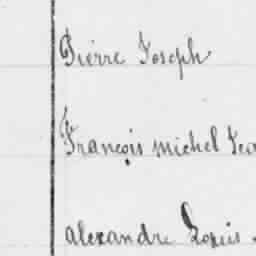 Pierre Joseph
François michel
alexandre Louis